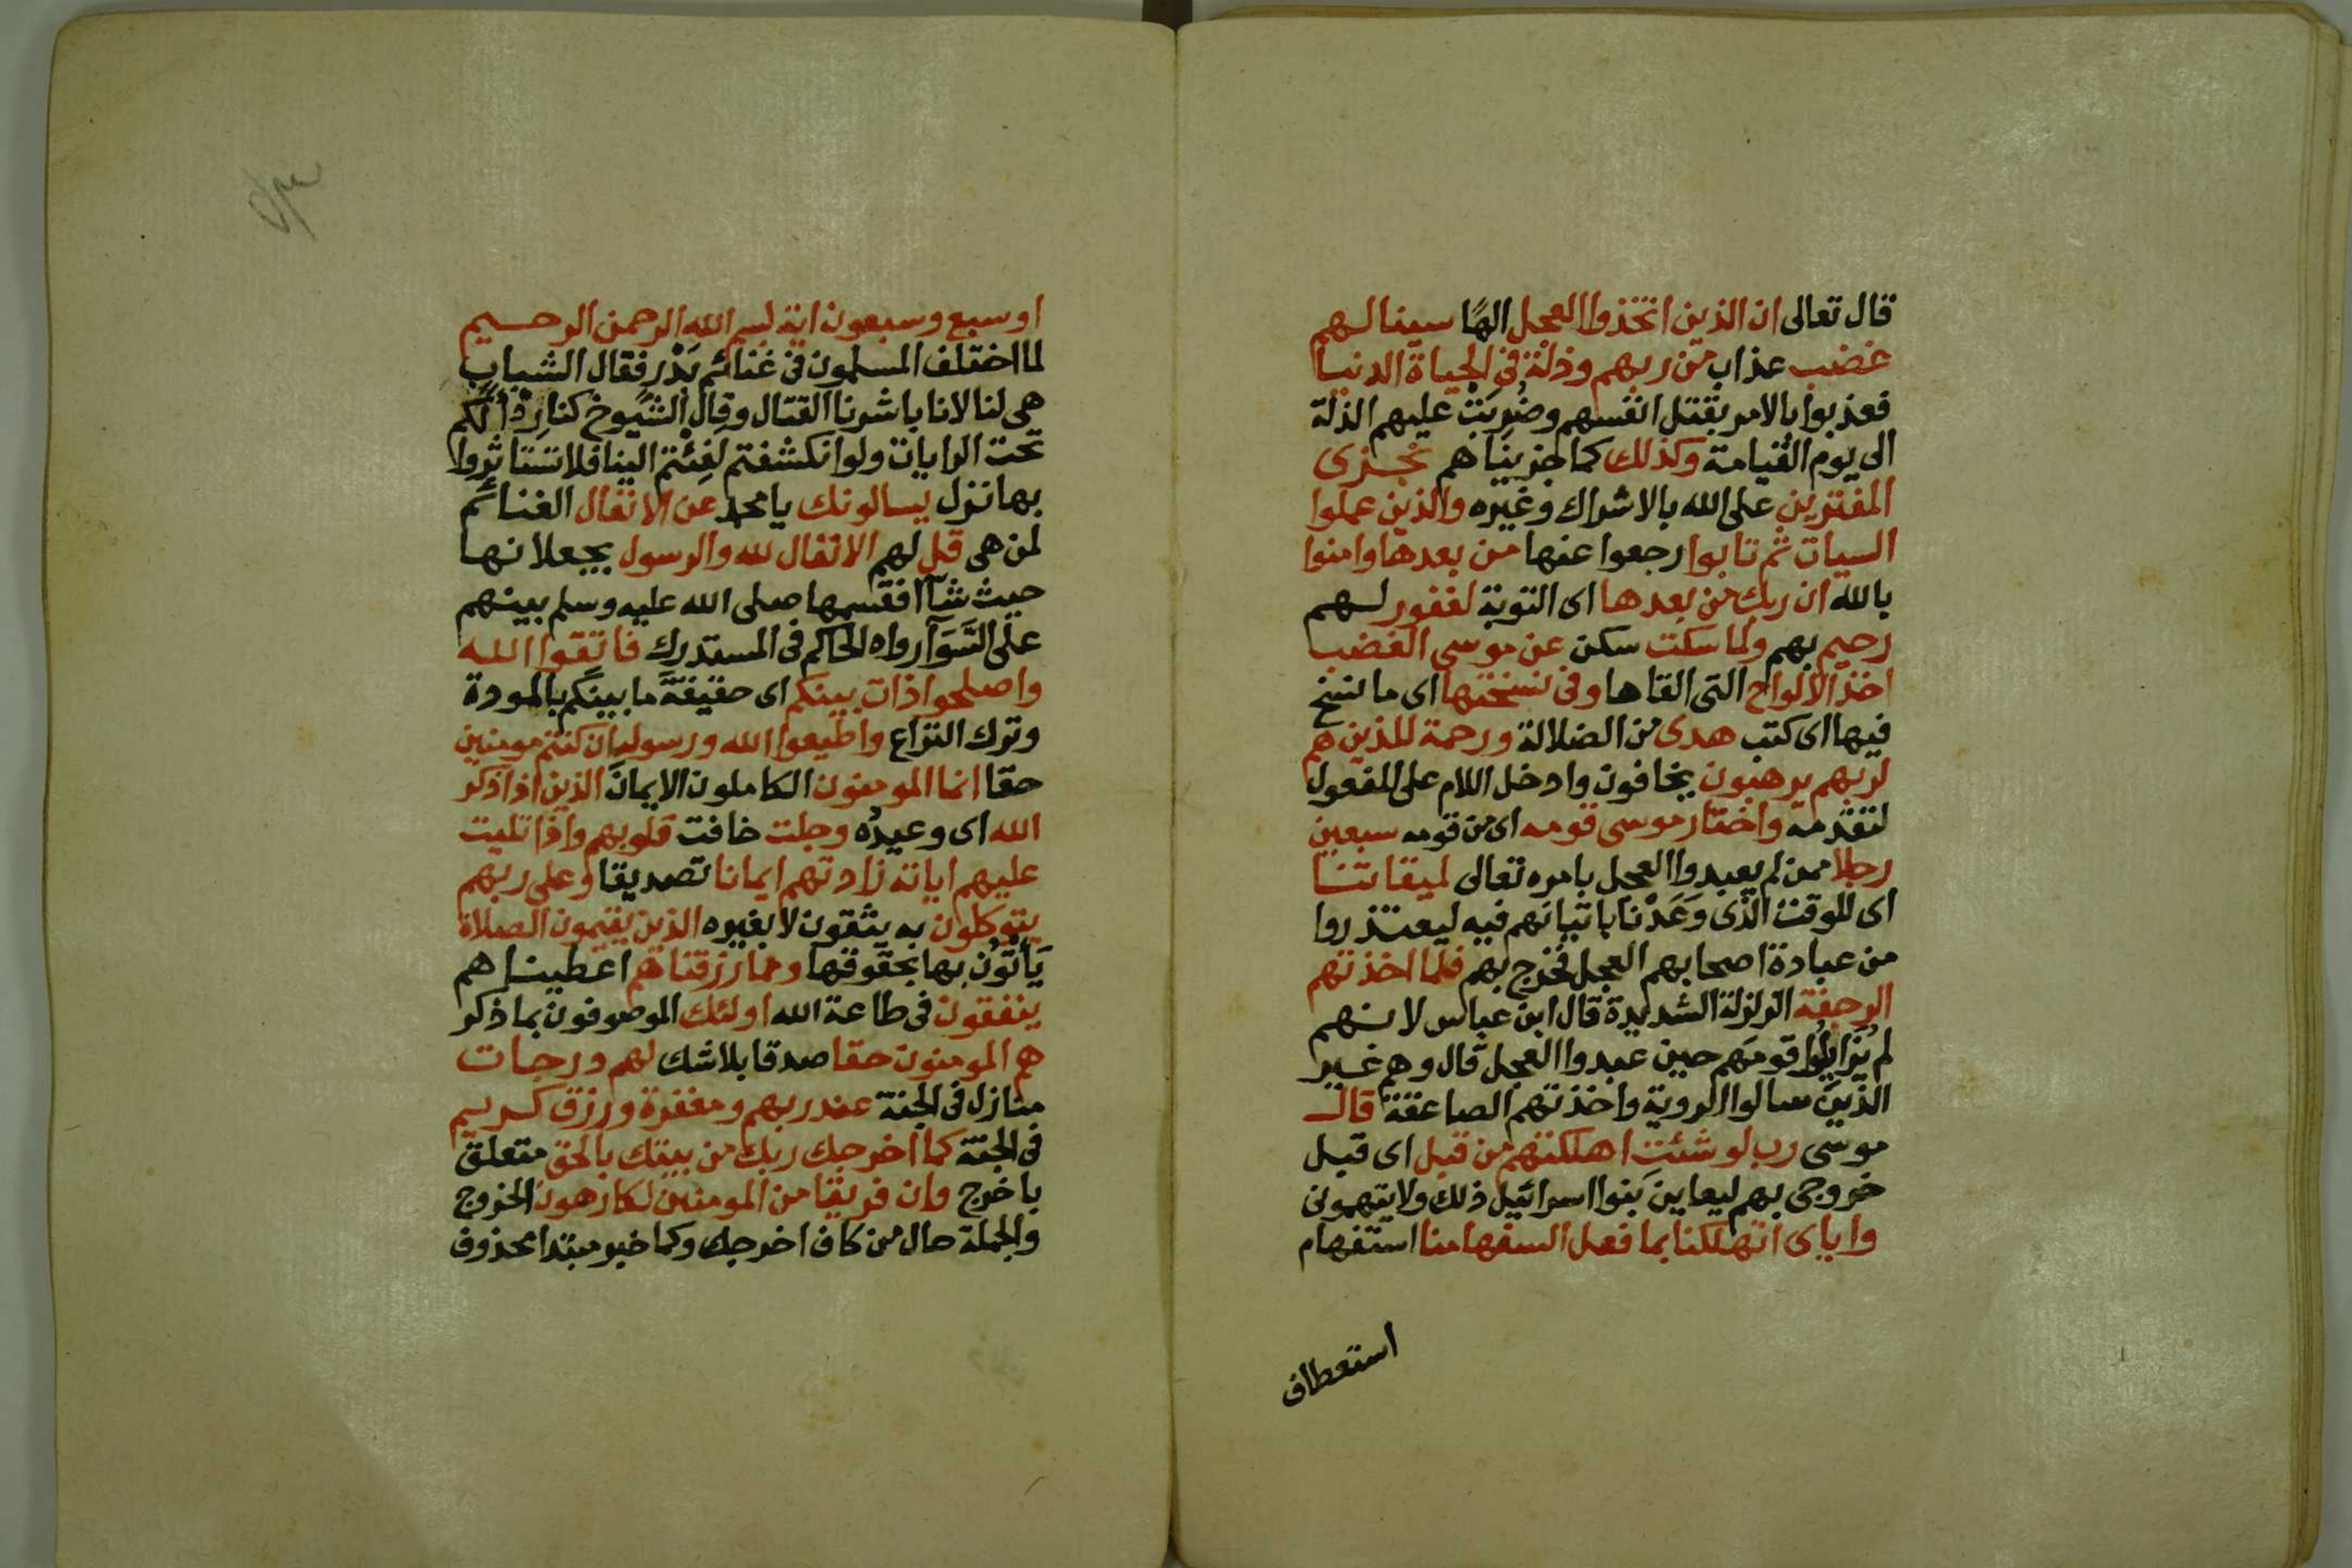 قال تعالى ان الذين اتخذوا العجل الهًا سينالهم
غضب عذاب من ربهم وذلة في الحياة الدنيا
فعذبوا بالامر بقتل انفسهم وضُرِبَتْ عليهم الذلة
الى يوم القيامة وكذلك كما جزيناهم نجزى
المفترين على الله بالاشراك وغيره والذين عملوا
السيات ثم تابوا رجعوا عنها من بعدها وامنوا
بالله ان ربك من بعدها اى التوبة لغفور لهم
رحيم بهم ولما سكت سكن عن موسى الغضب
اخذ الالواح التى القاها وفى نسختها اى ما نسخ
فيها اى كتب هدى من الضلالة ورحمة للذين هم
لربهم يرهبون يخافون وادخل اللام على المفعول
لتقدمه واختار موسى قومه اى من قومه سبعين
رجلا ممن لم يعبدوا العجل بامره تعالى لميقاتنا
اى للوقت الذى وَعَدْنا باتيانهم فيه ليعتذروا
من عبادة اصحابهم العجل فخرج بهم فلما اخذتهم
الرجفة الزلزلة الشديدة قال ابن عباس لانهم
لم يُزَايِلُوا قومَهم حين عبدوا العجل قال وهم غير
الذينَ سالوا الروية واخذتهم الصاعقة قال
موسى رب لو شئت اهلكتهم من قبل اى قبل
خروجى بهم ليعاين بَنوا اسرائيل ذلك ولا يتهمونى
واياى اتهلكنا بما فعل السفها منا استفهام
استعطاف
او سبع وسبعون اية بسم الله الرحمن الرحيم
لما اختلف المسلمون فى غنائم بَدْرٍ فقال الشباب
هى لنا لانا باشرنا القتال وقال الشيوخ كنا رِدْأً لكم
تحت الرايات ولو انكشفتم لَفِئْتم الينا فلا تستاثروا
بها نزل يسالونك يا محمد عن الانفال الغنائم
لمن هى قل لهم الانفال لله والرسول يجعلانها
حيث شاآ فقسمها صلى الله عليه وسلم بينهم
على السَّوَآ رواه الحاكم فى المستدرك فاتقوا الله
واصلحوا ذات بينكم اى حقيقةَ ما بينكم بالمودة
وترك النزاع واطيعوا الله ورسوله ان كنتم مومنين
حقا انما المومنون الكاملون الايمان الذين اذا ذكر
الله اى وعيدُه وجلت خافت قلوبهم واذا تليت
عليهم اياته زادتهم ايمانا تصديقا وعلى ربهم
يتوكلون به يثقون لا بغيره الذين يقيمون الصلاة
يَأْتُونَ بها بحقوقها ومما رزقناهم اعطيناهم
ينفقون فى طاعة الله اولئك الموصوفون بما ذكر
هم المومنون حقا صدقا بلا شك لهم درجات
منازل فى الجنة عند ربهم ومغفرة ورزق كريم
فى الجنة كما اخرجك ربك من بيتك بالحق متعلق
باخرج وان فريقا من المومنين لكارهون الخروج
والجملة حال من كاف اخرجك وكما خبر مبتدا محذوف